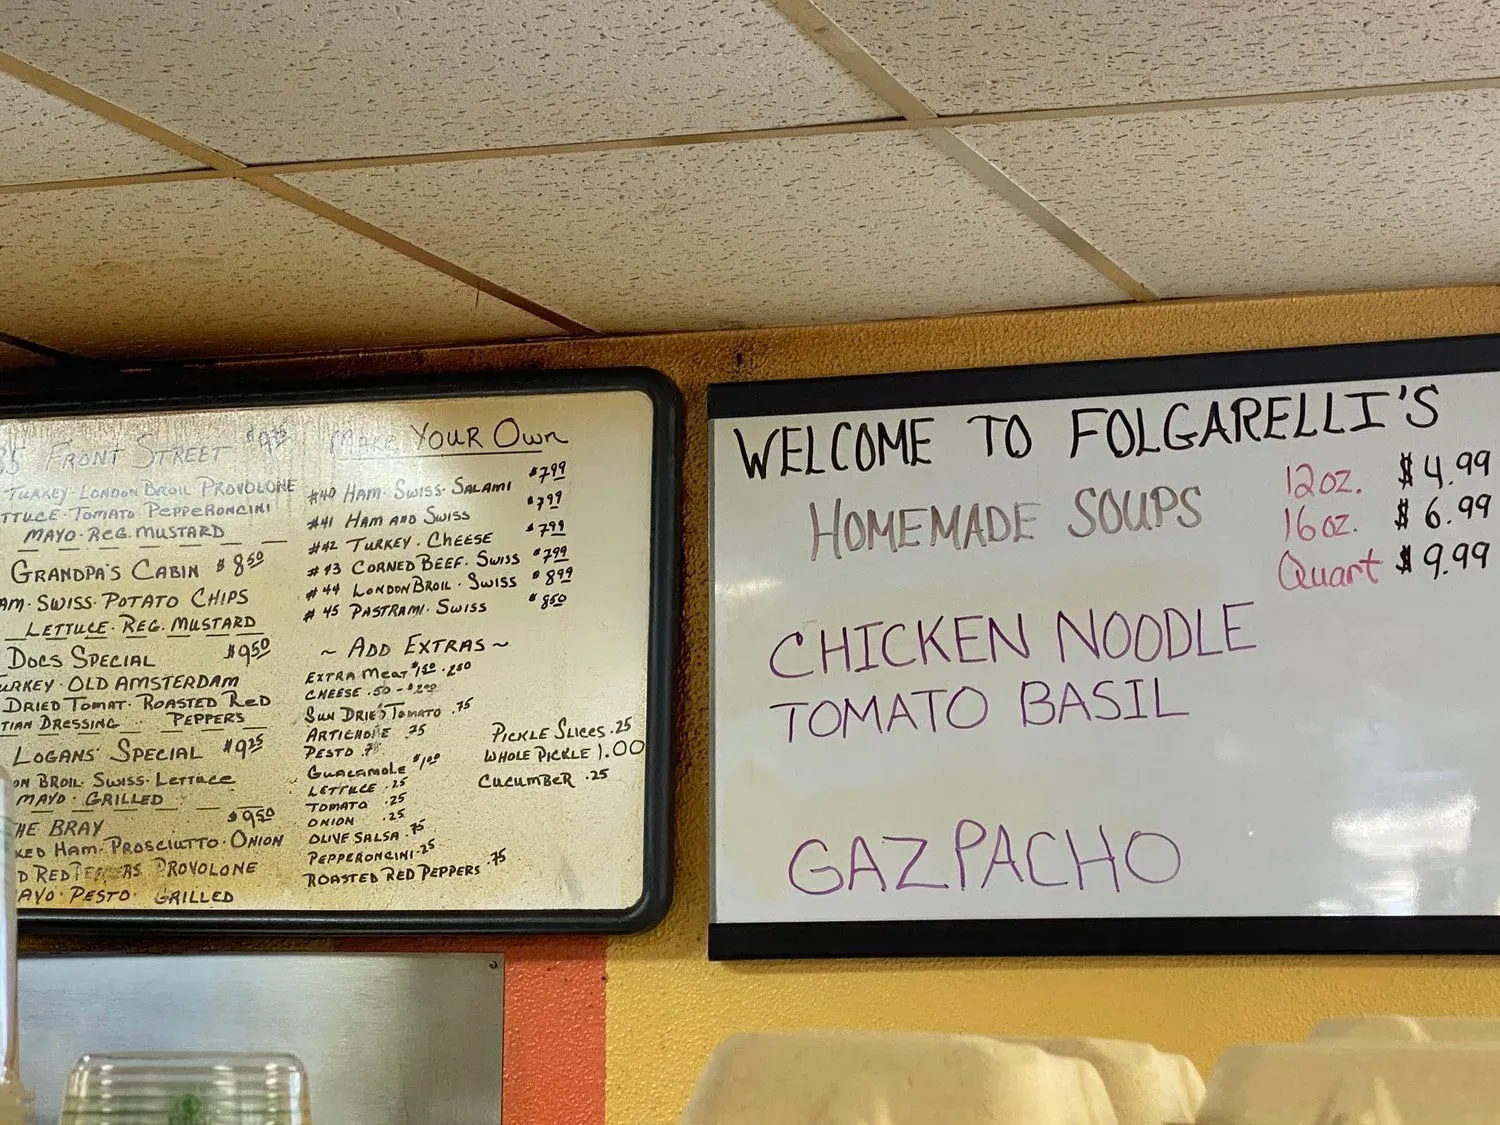 FRONT STREET
TURKEY·LONDON BROIL PROVOLONE
TTUCE·TOMATO PEPPERONCINI
MAYO·REG. MUSTARD
GRANDPA'S CABIN $8.50
AM·SWISS·POTATO CHIPS
LETTUCE·REG. MUSTARD
DOCS SPECIAL $9.50
URKEY·OLD AMSTERDAM
DRIED TOMAT·ROASTED RED
TIAN DRESSING PEPPERS
LOGANS' SPECIAL $9.25
ON BROIL·SWISS·LETTUCE
MAYO·GRILLED
HE BRAY $9.50
KED HAM·PROSCIUTTO·ONION
D RED PEPPERS PROVOLONE
AYO·PESTO· GRILLED
MAKE YOUR OWN
#40 HAM·SWISS·SALAMI $7.99
#41 HAM AND SWISS $7.99
#42 TURKEY·CHEESE $7.99
#43 CORNED BEEF·SWISS $7.99
#44 LONDON BROIL·SWISS $8.99
#45 PASTRAMI·SWISS $8.50
~ADD EXTRAS~
EXTRA MEAT $1.50·2.50
CHEESE .50-$2.00
SUN DRIED TOMATO .75
ARTICHOKE .75
PESTO
GUACAMOLE $1.00
LETTUCE .25
TOMATO .25
ONION .25
OLIVE SALSA .75
PEPPERONCINI .25
ROASTED RED PEPPERS .75
PICKLE SLICES .25
WHOLE PICKLE 1.00
CUCUMBER .25
WELCOME TO FOLGARELLI'S
HOMEMADE SOUPS
12oz. $4.99
16oz. $6.99
Quart $9.99
CHICKEN NOODLE
TOMATO BASIL
GAZPACHO